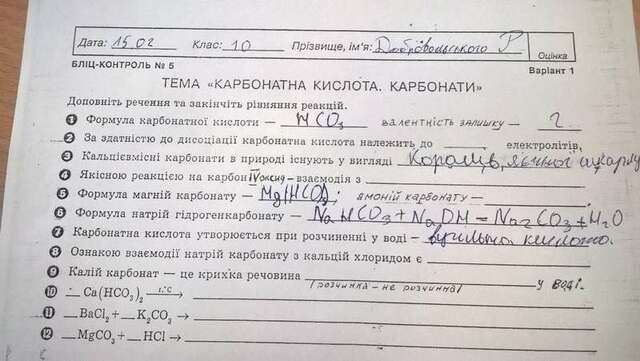 Дата: 15.02 Клас: 10 Прізвище, ім'я: Добровольського Р Оцінка
БЛІЦ-КОНТРОЛЬ № 5 Варіант 1
ТЕМА «КАРБОНАТНА КИСЛОТА. КАРБОНАТИ»
Доповніть речення та закінчіть рівняння реакцій.
1 Формула карбонатної кислоти — HCO3 валентність залишку — 2
2 За здатністю до дисоціації карбонатна кислота належить до ______ електролітів,
3 Кальцієвмісні карбонати в природі існують у вигляді Коралів, яєчної шкарлу
4 Якісною реакцією на карбон IV оксид – взаємодія з
5 Формула магній карбонату — Mg(HCO3; амоній карбонату —
6 Формула натрій гідрогенкарбонату — NaHCO3+NaOH=Na2CO3+H2O
7 Карбонатна кислота утворюється при розчиненні у воді – вугільна кислота.
8 Ознакою взаємодії натрій карбонату з кальцій хлоридом є
9 Калій карбонат — це крихка речовина (розчинна – не розчинна) у воді.
10 __Ca(HCO3)2 —t°C→
11 __BaCl2 + __K2CO3 →
12 __MgCO3 + __HCl →